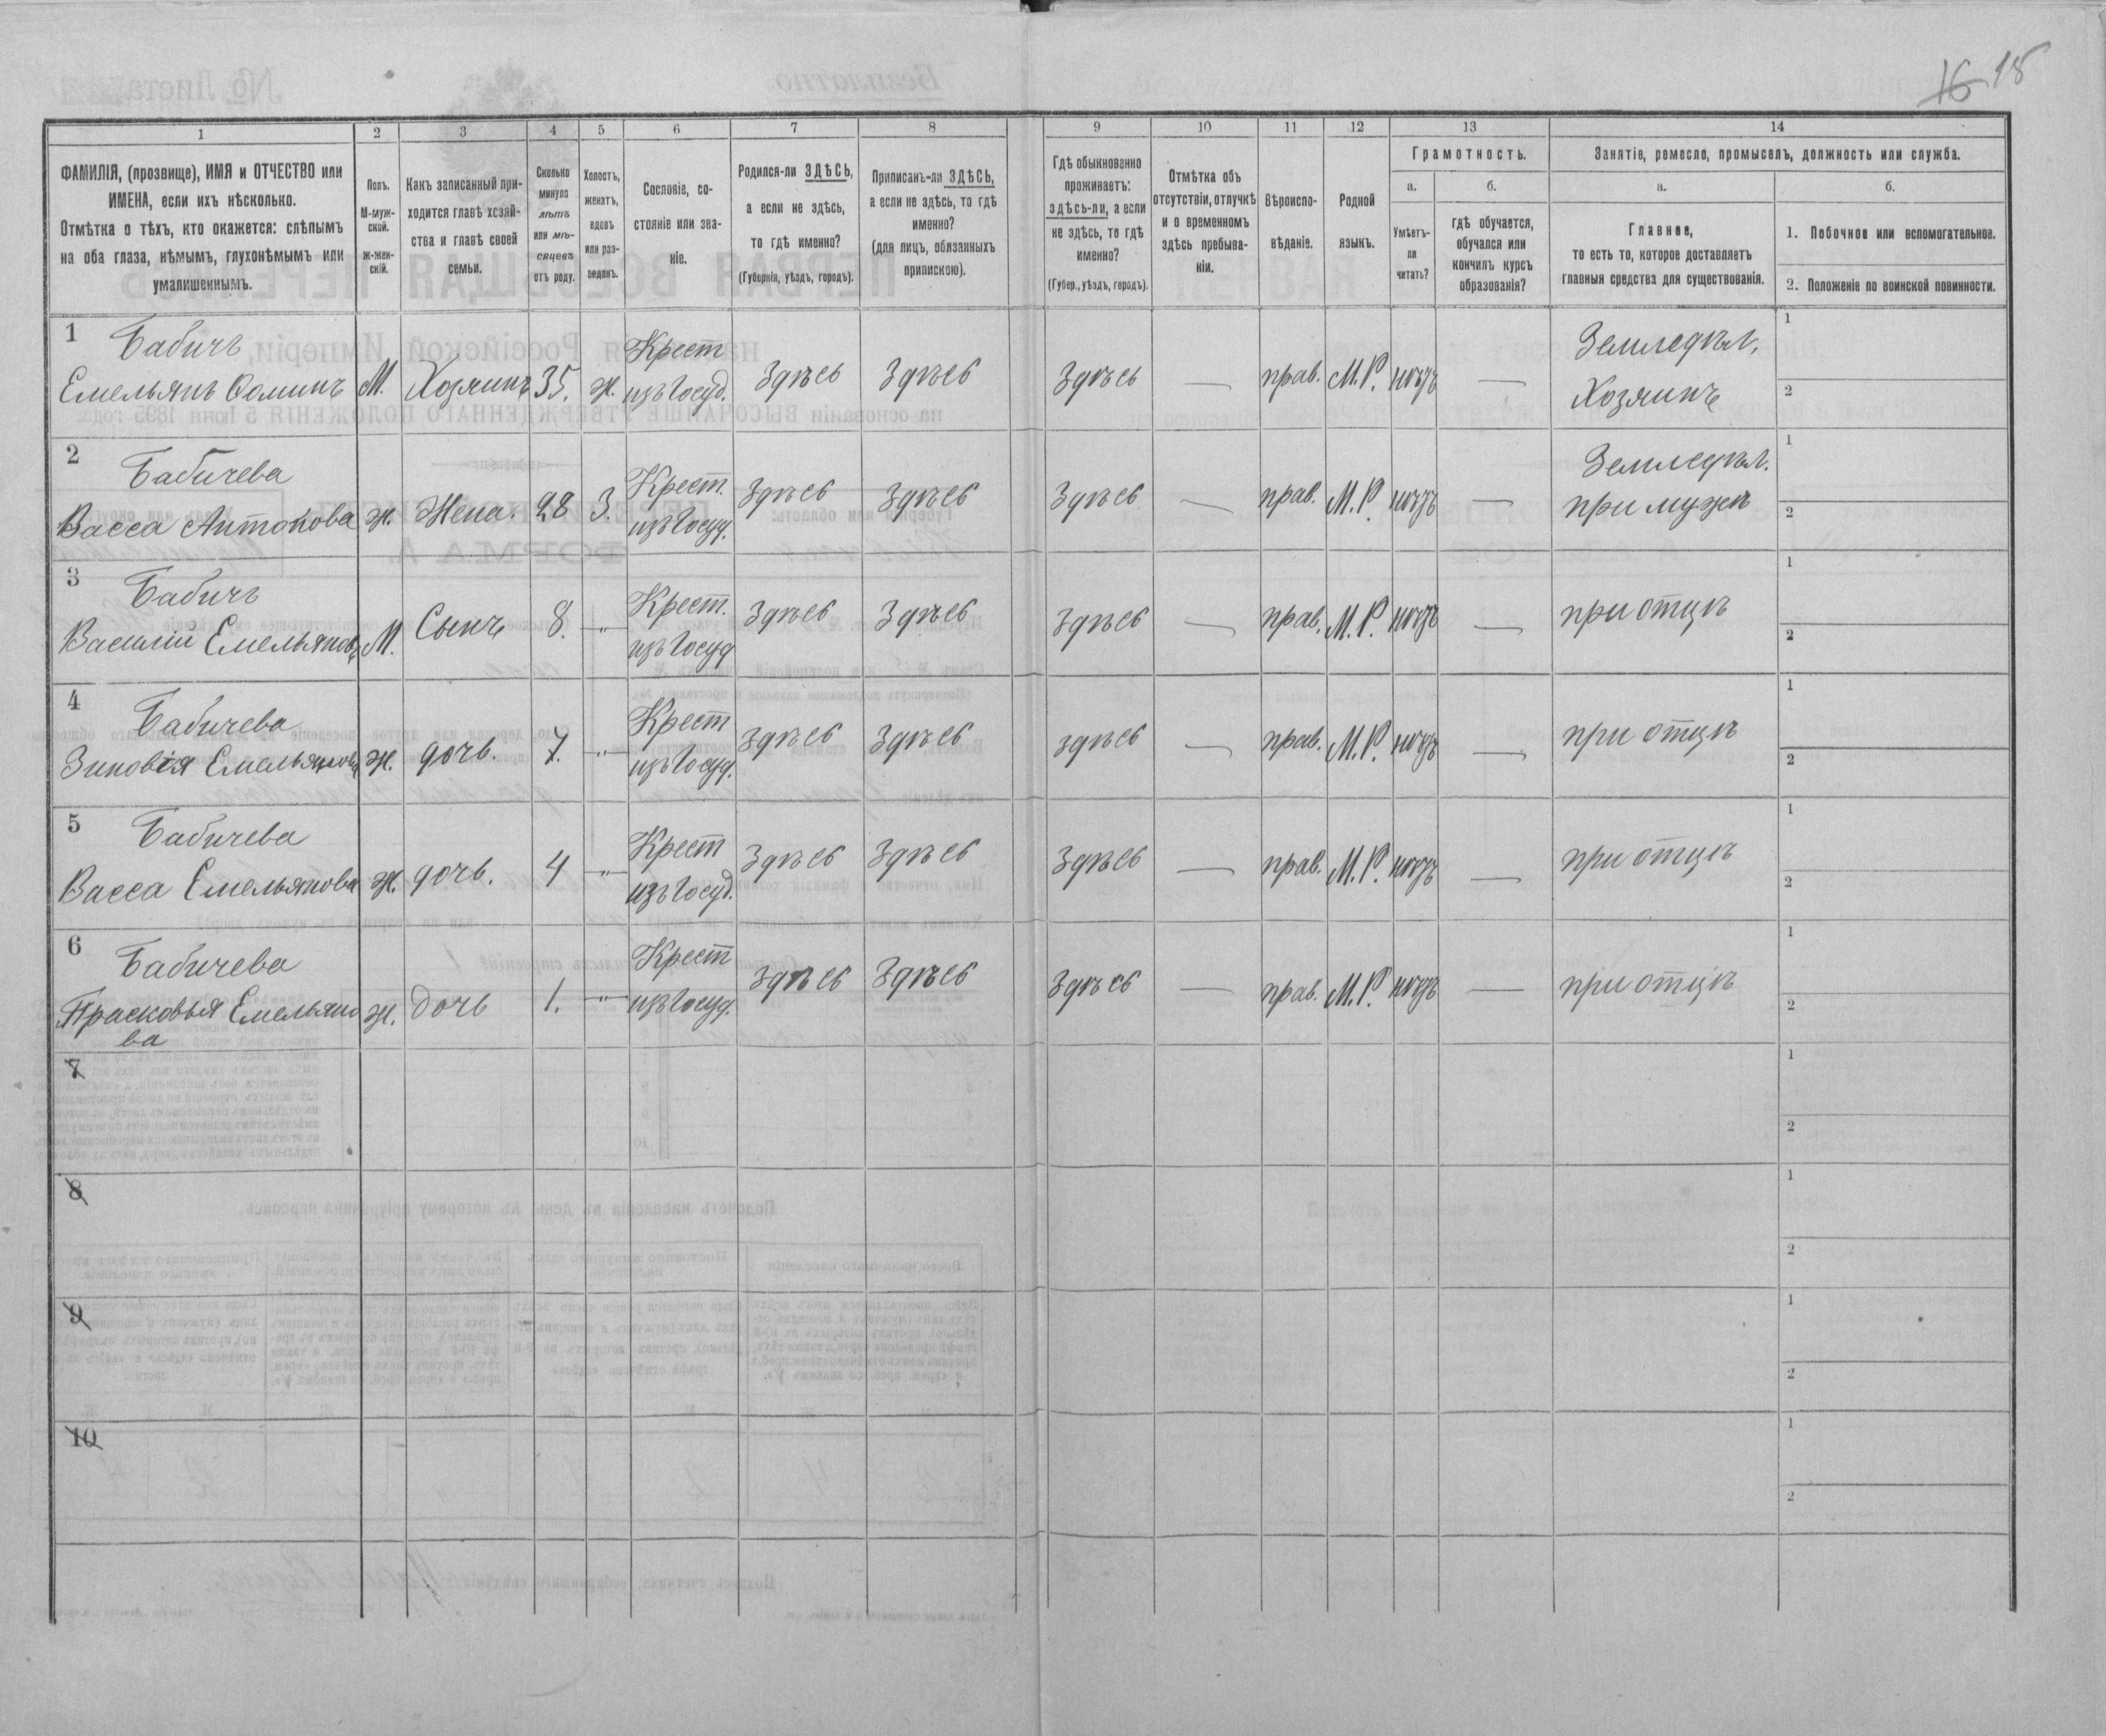 16 15
1
2
3
4
5
6
7
8
9
10
11
12
13
14
ФАМИЛІЯ, (прозвище), ИМЯ и ОТЧЕСТВО или
ИМЕНА, если ихъ нѣсколько.
Отмѣтка о тѣхъ, кто окажется: слѣпымъ
на оба глаза, нѣмымъ, глухонѣмымъ или
умалишеннымъ.
Полъ.
М-муж-
ской.
Ж-жен-
скій.
Какъ записанный при-
ходится главѣ хозяй-
ства и главѣ своей
семьи.
Сколько
минуло
лѣтъ
или мѣ-
сяцевъ
отъ роду.
Холостъ,
женатъ,
вдовъ
или раз-
веденъ.
Сословіе, со-
стояніе или зва-
ніе.
Родился-ли ЗДѢСЬ,
а если не здѣсь,
то гдѣ именно?
(Губернія, уѣздъ, городъ).
Приписанъ-ли ЗДѢСЬ,
а если не здѣсь, то гдѣ
именно?
(для лицъ, обязанныхъ
припискою).
Гдѣ обыкновенно
проживаетъ:
здѣсь-ли, а если
не здѣсь, то гдѣ
именно?
(Губер., уѣздъ, городъ).
Отмѣтка объ
отсутствіи, отлучкѣ
и о временномъ
здѣсь пребыва-
ніи.
Вѣроиспо-
вѣданіе.
Родной
языкъ.
Грамотность.
а.
Умѣетъ-
ли
читать?
б.
гдѣ обучается,
обучался или
кончилъ курсъ
образованія?
Занятіе, ремесло, промыселъ, должность или служба.
а.
Главное,
то есть то, которое доставляетъ
главныя средства для существованія.
б.
1. Побочное или вспомогательное.
2. Положеніе по воинской повинности.
1 Бабичъ
Емельянъ Ѳоминъ М. Хозяинъ 35. ж. Крест
изъ Госуд. Здѣсь Здѣсь Здѣсь — прав. М.Р. нѣтъ — Земледѣл.
Хозяинъ 1
2
2 Бабичева
Васса Антонова ж. Жена. 28 З. Крест.
изъ Госуд. Здѣсь Здѣсь Здѣсь — прав. М.Р. нѣтъ — Земледѣл.
при мужѣ 1
2
3 Бабичъ
Василій Емельяновъ М. Сынъ 8. -"- Крест.
изъ Госуд Здѣсь Здѣсь Здѣсь — прав. М.Р. нѣтъ — при отцѣ 1
2
4 Бабичева
Зиновія Емельянова ж. дочь. 7. -"- Крест
изъ Госуд. Здѣсь Здѣсь здѣсь — прав. М.Р. нѣтъ — при отцѣ 1
2
5 Бабичева
Васса Емельянова ж. дочь. 4 -"- Крест
изъ Госуд. Здѣсь Здѣсь Здѣсь — прав. М.Р. нѣтъ — при отцѣ 1
2
6 Бабичева
Прасковья Емельяно
ва ж. Дочь 1. -"- Крест
изъ Госуд. Здѣсь Здѣсь Здѣсь — прав. М.Р. нѣтъ — при отцѣ 1
2
7 1
2
8 1
2
9 1
2
10 1
2